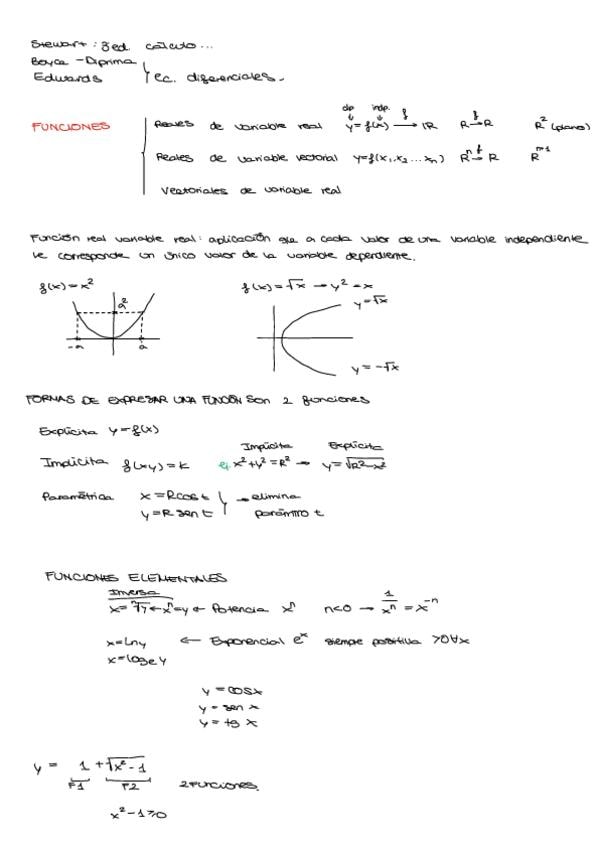 Stewart: 3ed. cálculo...
Boyce - Diprima
Edwards } ec. diferenciales.
dp indp.
FUNCIONES | Reales de variable real y=f(x) →f IR R →f R R² (plano)
Reales de variable vectorial y=f(x₁,x₂...xₙ) Rⁿ →f R Rⁿ⁺¹
Vectoriales de variable real
Función real variable real: aplicación que a cada valor de una variable independiente
le corresponde un único valor de la variable dependiente.
f(x)=x² f(x)=√x → y²=x
a² y=√x
-a a
y=-√x
FORMAS DE EXPRESAR UNA FUNCIÓN Son 2 funciones
Explícita y=f(x)
Implícita Explícita
Implícita f(xy)=K ej x²+y²=R² → y=√R²-x²
Paramétrica x=Rcost } → elimina
y=R sen t parámtro t
FUNCIONES ELEMENTALES
Inversa
x=ⁿ√y ← xⁿ=y ← Potencia xⁿ n<0 → 1/xⁿ = x⁻ⁿ
x=Lny ← Exponencial eˣ siempre positiva >0∀x
x=logₑy
y=cosx
y=sen x
y=tg x
y = 1+√x²-1
F1 F2 2 Funciones.
x²-1≥0